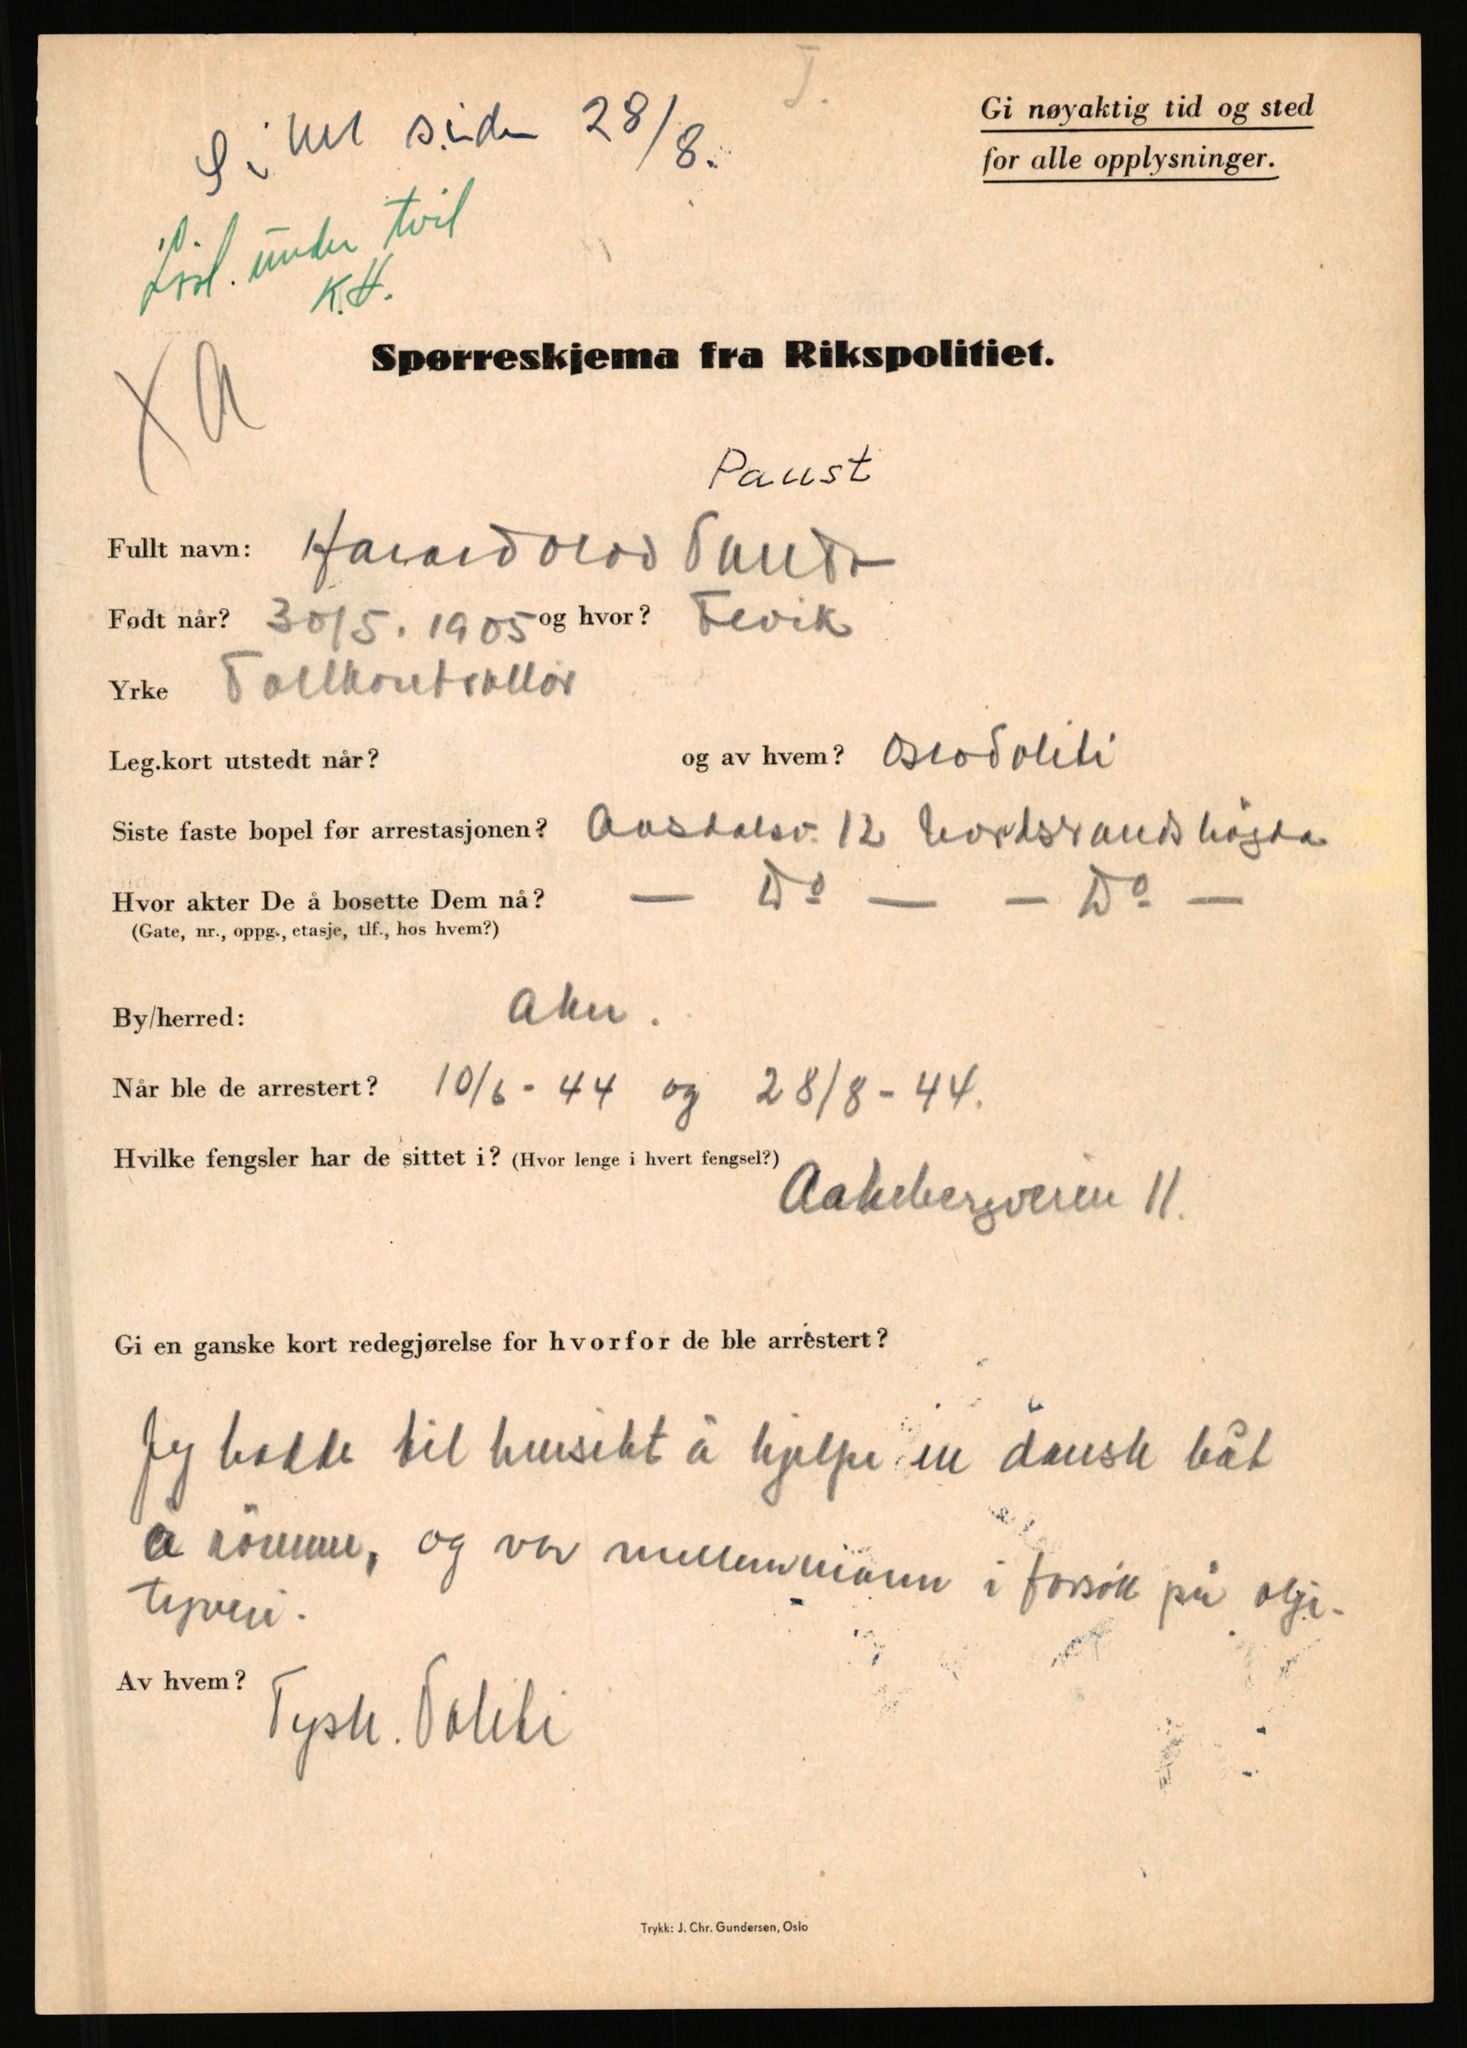 I.
Gi nøyaktig tid og sted
for alle opplysninger.
siden 28/8.
Lösl. under tvil
K.H.
X A
Spørreskjema fra Rikspolitiet.
Paust
Fullt navn: Harald Olav Paust
Født når? 30/5. 1905 og hvor? Fevik
Yrke Tollkontrollör
Leg.kort utstedt når? og av hvem? Oslo Politi
Siste faste bopel før arrestasjonen? 12 Nordstrandshögda
Hvor akter De å bosette Dem nå? — Do — — Do —
(Gate, nr., oppg., etasje, tlf., hos hvem?)
By/herred: Aker.
Når ble de arrestert? 10/6 - 44 og 28/8 - 44.
Hvilke fengsler har de sittet i? (Hvor lenge i hvert fengsel?)
Aakebergveien 11.
Gi en ganske kort redegjørelse for hvorfor de ble arrestert?
Jeg hadde til hensikt å hjelpe en dansk båt
å römme, og var mellemmann i forsök på olje-
tyveri.
Av hvem? Tysk. Politi
Trykk: J. Chr. Gundersen, Oslo